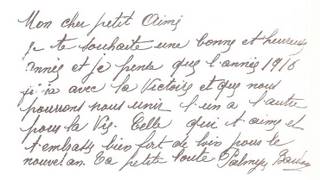 Mon cher petit Aimé
je te souhaite une bonne et heureuse
année et je pense que l'année 1916
ji ra avec la Victoire et que nous
pourrons nous unir l'un a l'autre
pour la Vie. Celle qui t'aime et
t'embasse bien fort de loin pour le
nouvel an. Ta petite toute Palmyre